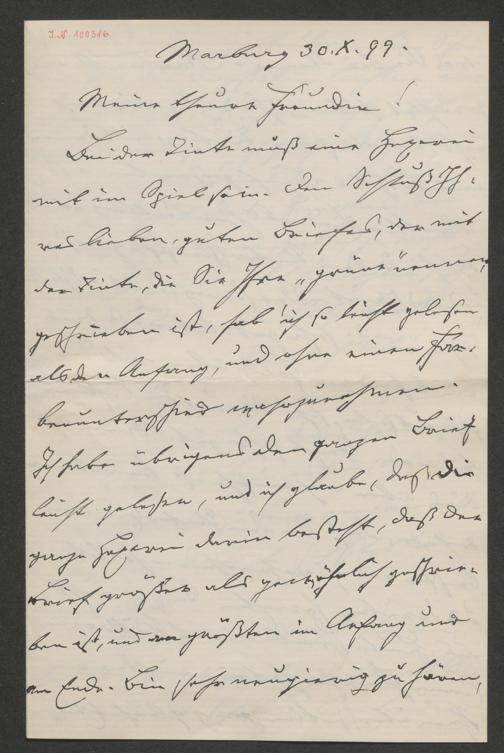 J.N. 100316
Marburg 30.X.99.
Meine theure Freundin!
Bei der Tinte muß eine Hexerei
mit im Spiel sein. Den Schluß Ih-
res lieben, guten Briefes, der mit
der Tinte, die Sie Ihre „grüne“ nennen,
geschrieben ist, hab' ich so leicht gelesen
als den Anfang, und ohne einen Far-
benunterschied wahrzunehmen.
Ich habe übrigens den ganzen Brief
leicht gelesen, und ich glaube, daß die
ganze Hexerei darin besteht, daß der
Brief größer als gewöhnlich geschrie-
ben ist, und am größten im Anfang und
am Ende. Bin sehr neugierig zu hören,